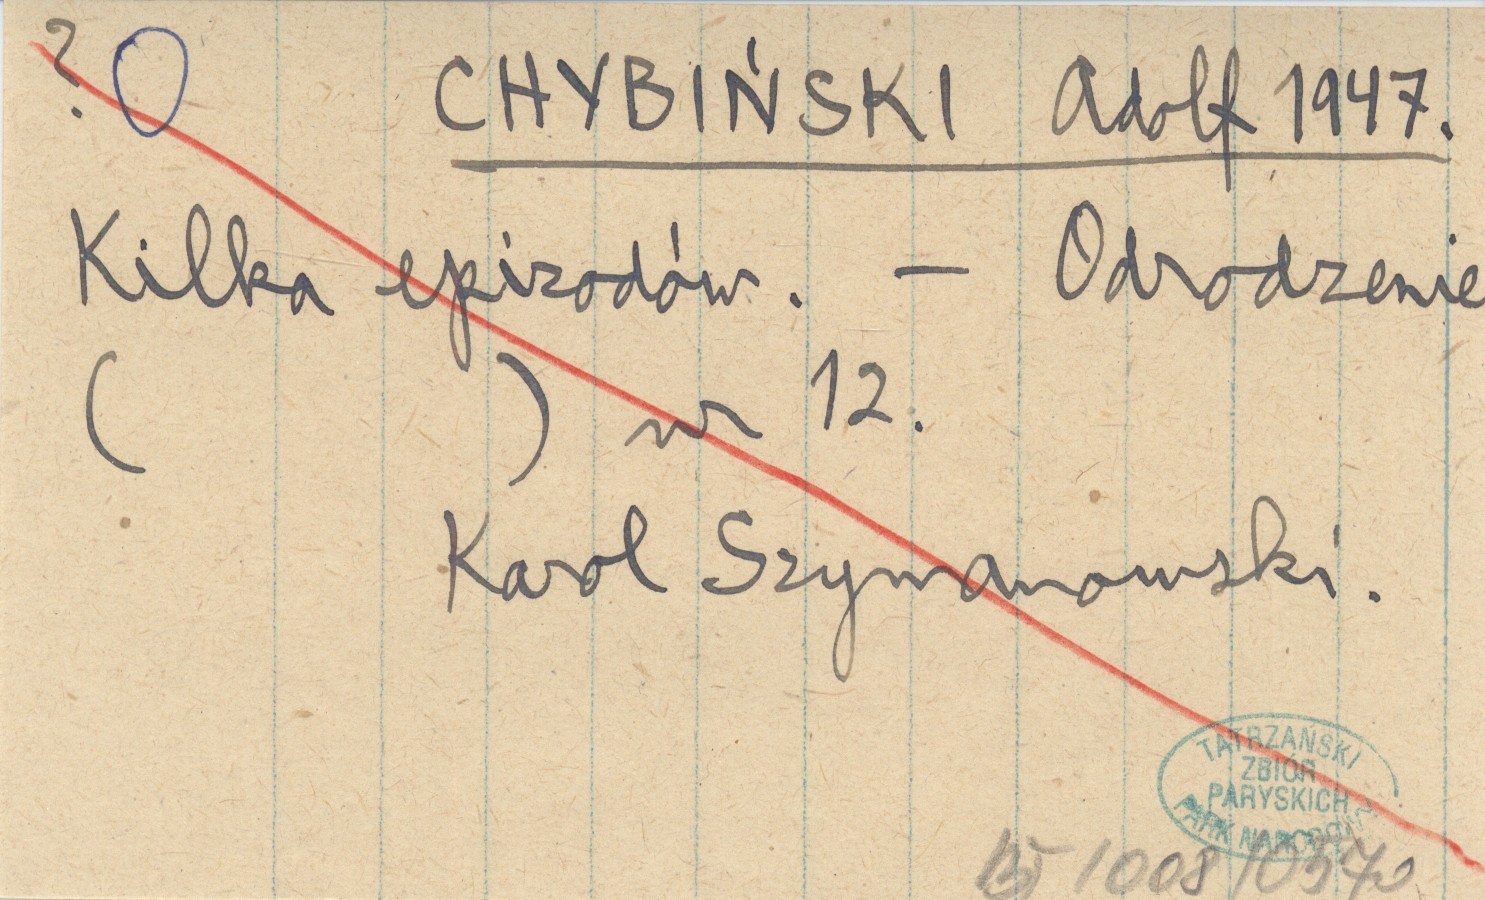 ? O CHYBIŃSKI Adolf 1947.
Kilka epizodów. — Odrodzenie
( ) nr 12.
Karol Szymanowski.
TATRZAŃSKI
ZBIÓR
PARYSKICH
PARK NARODOWY
/1008/